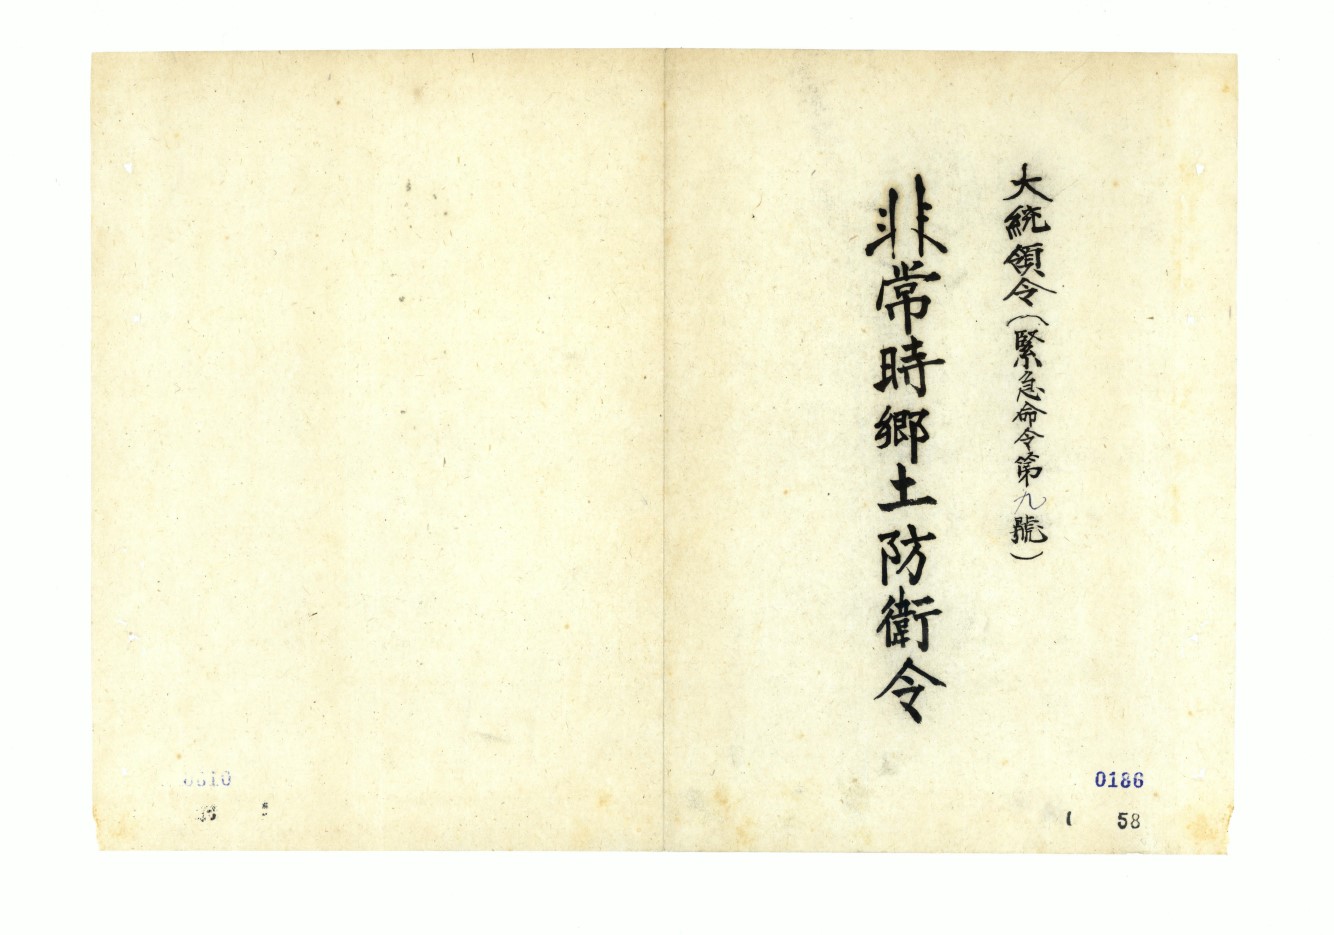 大統領令（緊急命令第九號）
非常時鄕土防衛令
0186
58